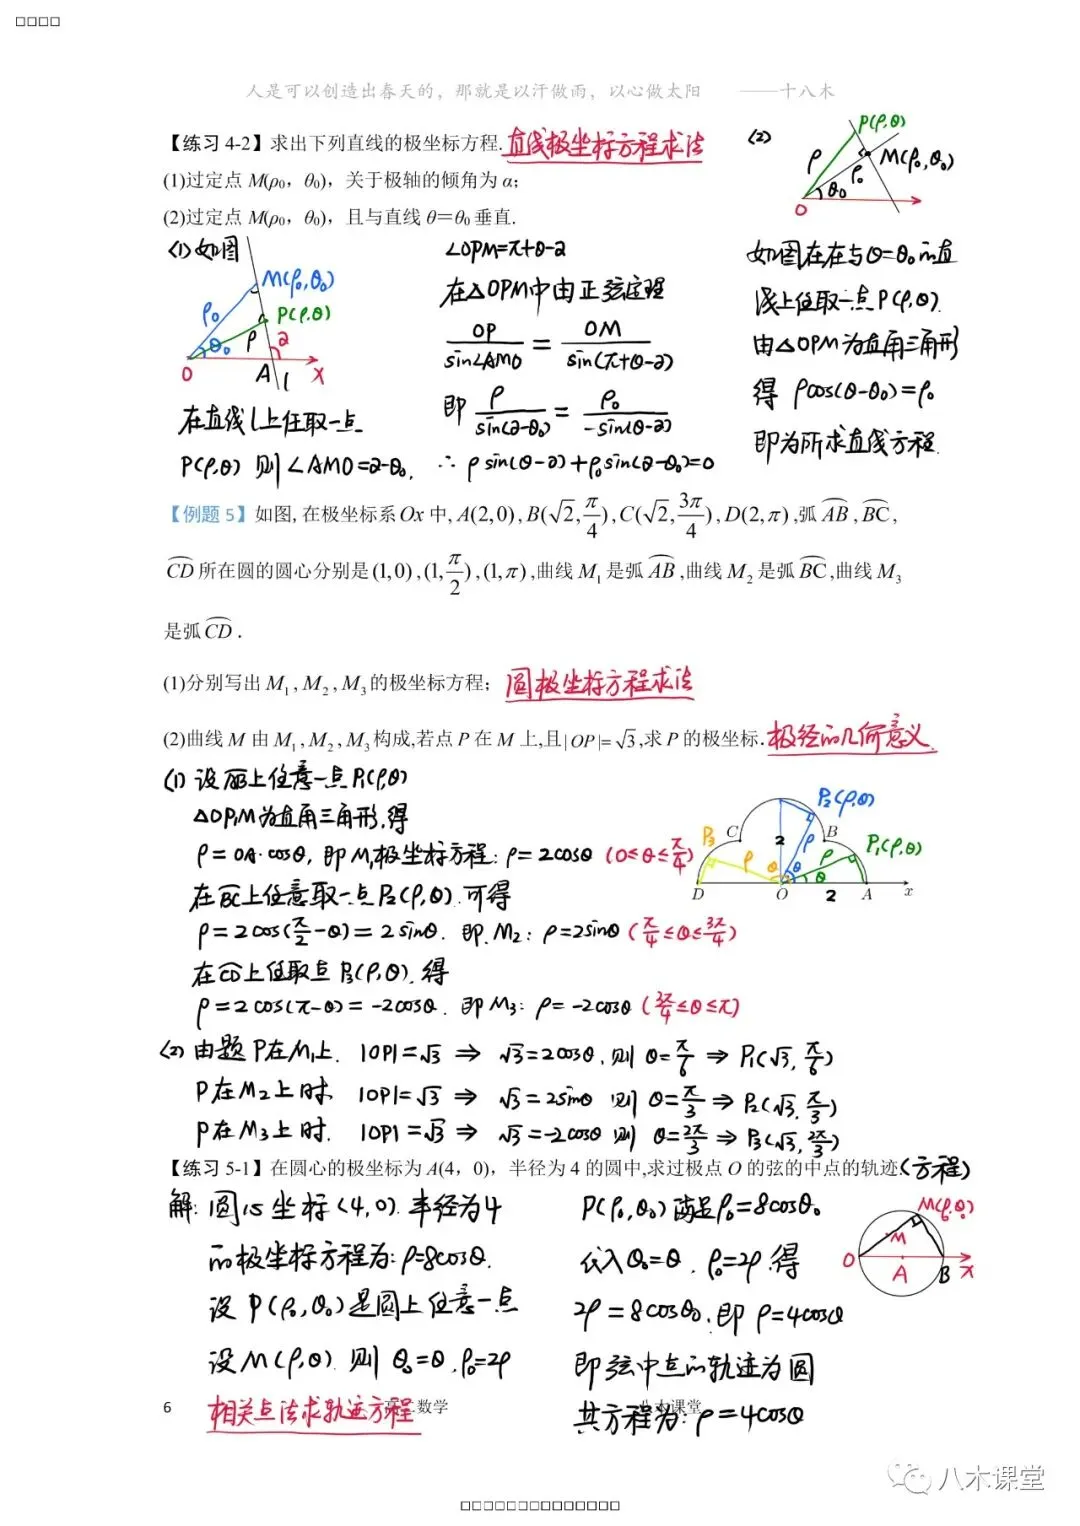 人是可以创造出春天的，那就是以汗做雨，以心做太阳 ——十八木
【练习 4-2】求出下列直线的极坐标方程. 直线极坐标方程求法
(1)过定点 M(ρ₀，θ₀)，关于极轴的倾角为 α；
(2)过定点 M(ρ₀，θ₀)，且与直线 θ＝θ₀ 垂直.
(1) 如图
M(ρ₀,θ₀)
P(ρ,θ)
ρ₀ θ₀ ρ α
O A l x
在直线 l 上任取一点
P(ρ,θ) 则 ∠AMO=α-θ₀.
∠OPM=π+θ-α
在△OPM中由正弦定理
OP/sin∠AMO = OM/sin(π+θ-α)
即 ρ/sin(α-θ₀) = ρ₀/-sin(θ-α)
∴ ρsin(θ-α)+ρ₀sin(α-θ₀)=0
(2)
P(ρ,θ)
M(ρ₀,θ₀)
ρ ρ₀ θ₀
O
如图在在与θ=θ₀的直
线上任取一点P(ρ,θ).
由△OPM为直角三角形
得 ρcos(θ-θ₀)=ρ₀
即为所求直线方程.
【例题 5】如图, 在极坐标系 Ox 中, A(2,0), B(√2, π/4), C(√2, 3π/4), D(2,π) ,弧 AB⌢ , BC⌢ ,
CD⌢ 所在圆的圆心分别是 (1,0) , (1, π/2) , (1,π) ,曲线 M₁ 是弧 AB⌢ ,曲线 M₂ 是弧 BC⌢ ,曲线 M₃
是弧 CD⌢ .
(1)分别写出 M₁ , M₂ , M₃ 的极坐标方程； 圆极坐标方程求法
(2)曲线 M 由 M₁ , M₂ , M₃ 构成,若点 P 在 M 上,且 |OP|= √3 ,求 P 的极坐标. 极径的几何意义
(1) 设AB⌢上任意一点P₁(ρ,θ)
△OP₁M为直角三角形,得
ρ=OA·cosθ, 即M₁极坐标方程: ρ=2cosθ (0≤θ≤π/4)
在BC⌢上任意取一点P₂(ρ,θ).可得
ρ=2cos(π/2-θ)=2sinθ. 即. M₂: ρ=2sinθ (π/4≤θ≤3π/4)
在CD⌢上任取点P₃(ρ,θ). 得
ρ=2cos(π-θ)=-2cosθ. 即M₃: ρ=-2cosθ (3π/4≤θ≤π)
P₂(ρ,θ)
P₃ C 2 B P₁(ρ,θ)
ρ ρ ρ
θ θ θ
D O 2 A x
(2) 由题P在M₁上. |OP|=√3 ⇒ √3=2cosθ. 则 θ=π/6 ⇒ P₁(√3, π/6)
P在M₂上时. |OP|=√3 ⇒ √3=2sinθ 则 θ=π/3 ⇒ P₂(√3, π/3)
P在M₃上时. |OP|=√3 ⇒ √3=-2cosθ 则 θ=2π/3 ⇒ P₃(√3, 2π/3)
【练习 5-1】在圆心的极坐标为 A(4，0)，半径为 4 的圆中,求过极点 O 的弦的中点的轨迹(方程)
解: 圆心坐标(4,0). 半径为4
的极坐标方程为: ρ=8cosθ.
设P(ρ₀,θ₀)是圆上任意一点
设M(ρ,θ) 则 θ₀=θ.ρ₀=2ρ
相关点法求轨迹方程
P(ρ₀,θ₀) 满足ρ₀=8cosθ₀
代入θ₀=θ. ρ₀=2ρ.得
2ρ=8cosθ₀.即 ρ=4cosθ
即弦中点的轨迹为圆
其方程为: ρ=4cosθ
M(ρ₀,θ₀)
M
O A B x
6
数学
八木课堂
八木课堂